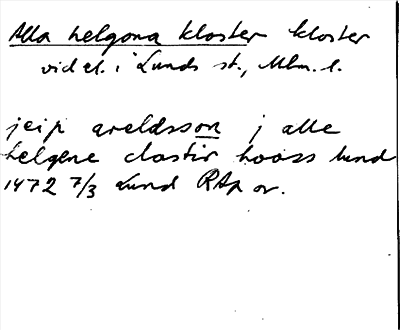 Alla helgona kloster kloster
vid el. i Lunds st., Mlm. l.
jeip areldsson j alle
helgene clostir hoass lund
1472 7/3 Lund RAp or.